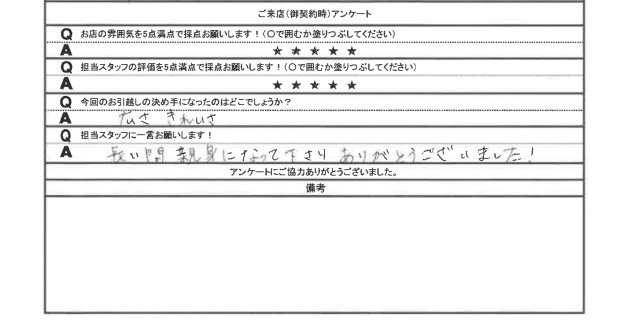 ご来店(御契約時)アンケート
Q お店の雰囲気を5点満点で採点お願いします!(〇で囲むか塗りつぶしてください)
A ★ ★ ★ ★ ★
Q 担当スタッフの評価を5点満点で採点お願いします!(〇で囲むか塗りつぶしてください)
A ★ ★ ★ ★ ★
Q 今回のお引越しの決め手になったのはどこでしょうか?
A 広さ きれいさ
Q 担当スタッフに一言お願いします!
A 長い間 親身になって下さり ありがとうございました!
アンケートにご協力ありがとうございました。
備考